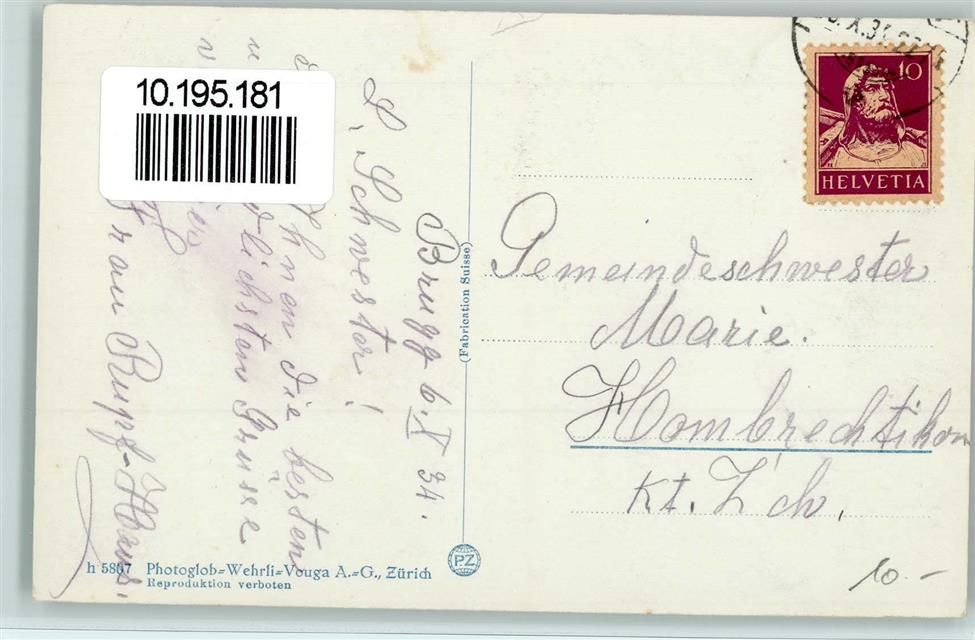 10.195.181
10
HELVETIA
Brugg 6. X 34.
L. Schwester!
Ihnen die besten
Grüsse
Frau Rupf-
Gemeindeschwester
Marie.
Hombrechtikon
Kt. Z'ch.
(Fabrication Suisse)
PZ
h 5807 Photoglob=Wehrli=Vouga A.=G., Zürich
Reproduktion verboten
10.-